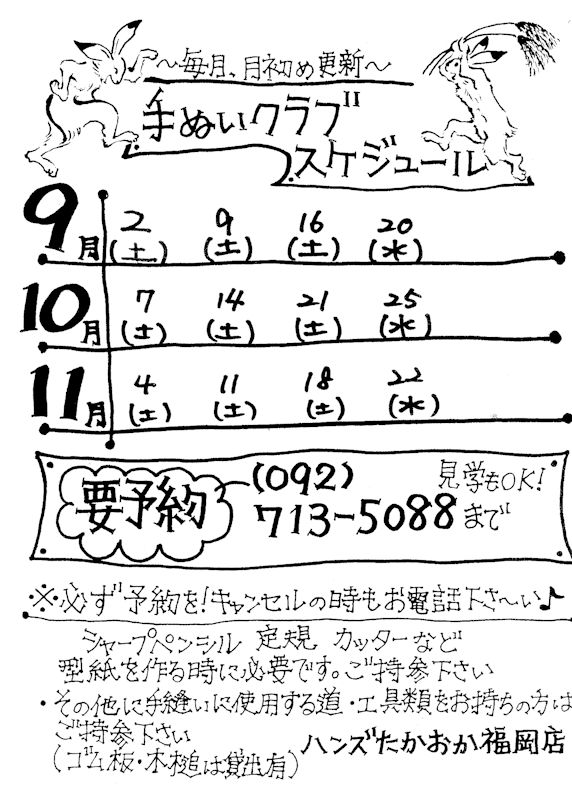 〜毎月、月初め更新〜
手ぬいクラブ
スケジュール
9月 2(土) 9(土) 16(土) 20(水)
10月 7(土) 14(土) 21(土) 25(水)
11月 4(土) 11(土) 18(土) 22(水)
要予約 (092) 見学もOK!
713-5088まで
※必ず予約を!キャンセルの時もお電話下さ〜い♪
シャープペンシル 定規 カッターなど
型紙を作る時に必要です。ご持参下さい
・その他に手縫いに使用する道・工具類をお持ちの方は
ご持参下さい
(ゴム板・木槌は貸出有)
ハンズたかおか福岡店